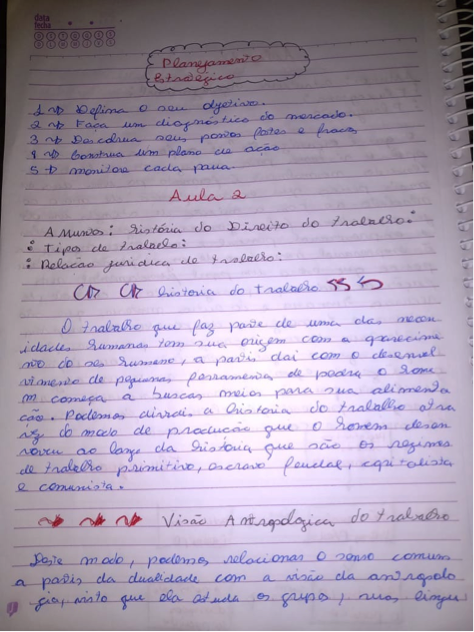 data
fecha
Planejamento
Estratégico
1 → Defina o seu objetivo.
2 → Faça um diagnóstico do mercado.
3 → Descubra seus pontos fortes e fracos
4 → Construa um plano de ação
5 → monitore cada
Aula 2
história do Direito do trabalho:
: Tipos de trabalho:
: Relação jurídica de trabalho:
história do trabalho
O trabalho que faz parte de uma das neces
idades humanas tem sua origem com a aparecime
nto do ser humano, a partir daí com o desenvol
vimento de pequenas ferramentas de pedra o home
m começa a buscar meios para sua alimenta
ção. Podemos dividir a história do trabalho atra
véz do modo de produção que o homem desen
volveu ao longo da história que são os regimes
de trabalho primitivo, escravo feudal, capitalista
e comunista.
Visão Antropológica do trabalho
Deste modo, podemos relacionar o senso comum
a partir da dualidade com a visão da antropolo
gia, visto que ela estuda os grupos, suas língu